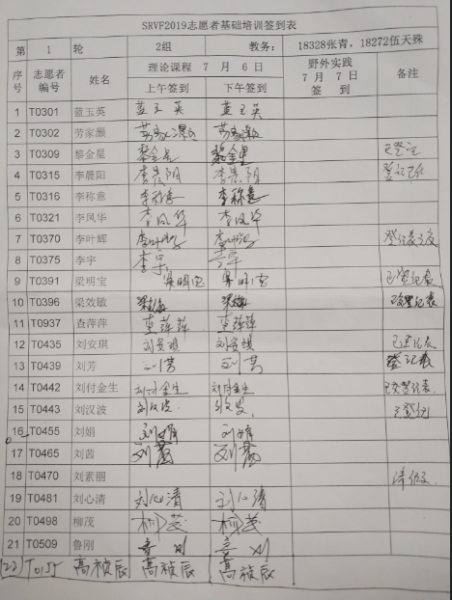 SRVF2019志愿者基础培训签到表
第 1 轮 2组 教务: 18328张青, 18272伍天殊
序号 志愿者编号 姓名 理论课程 7 月 6 日 上午签到 下午签到 野外实践 7 月 7 日 签 到 备注
1 T0301 蓝玉英 蓝玉英 蓝玉英
2 T0302 劳家灏 劳家灏 劳家灏
3 T0309 黎金星 黎金星 黎金星 已登记
4 T0315 李晨阳 李晨阳 李晨阳
5 T0316 李称意 李称意 李称意
6 T0321 李凤华 李凤华 李凤华
7 T0370 李叶辉 李叶辉 李叶辉
8 T0375 李宇 李宇 李宇
9 T0391 梁明宝 梁明宝 梁明宝 已登记表
10 T0396 梁效敏 梁效敏 梁效敏 已登记表
11 T0937 查萍萍 查萍萍 查萍萍
12 T0435 刘安琪 刘安琪 刘安琪
13 T0439 刘芳 刘芳 刘芳 登记表
14 T0442 刘付金生 刘付金生 刘付金生 已交登记表.
15 T0443 刘汉波 刘汉波 刘汉波 已登记
16 T0455 刘娟 刘娟 刘娟
17 T0465 刘茜 刘茜 刘茜
18 T0470 刘素丽
19 T0481 刘心清 刘心清 刘心清
20 T0498 柳茂 柳茂 柳茂
21 T0509 鲁刚 鲁刚 鲁刚
(22) T0155 高祯辰 高祯辰 高祯辰